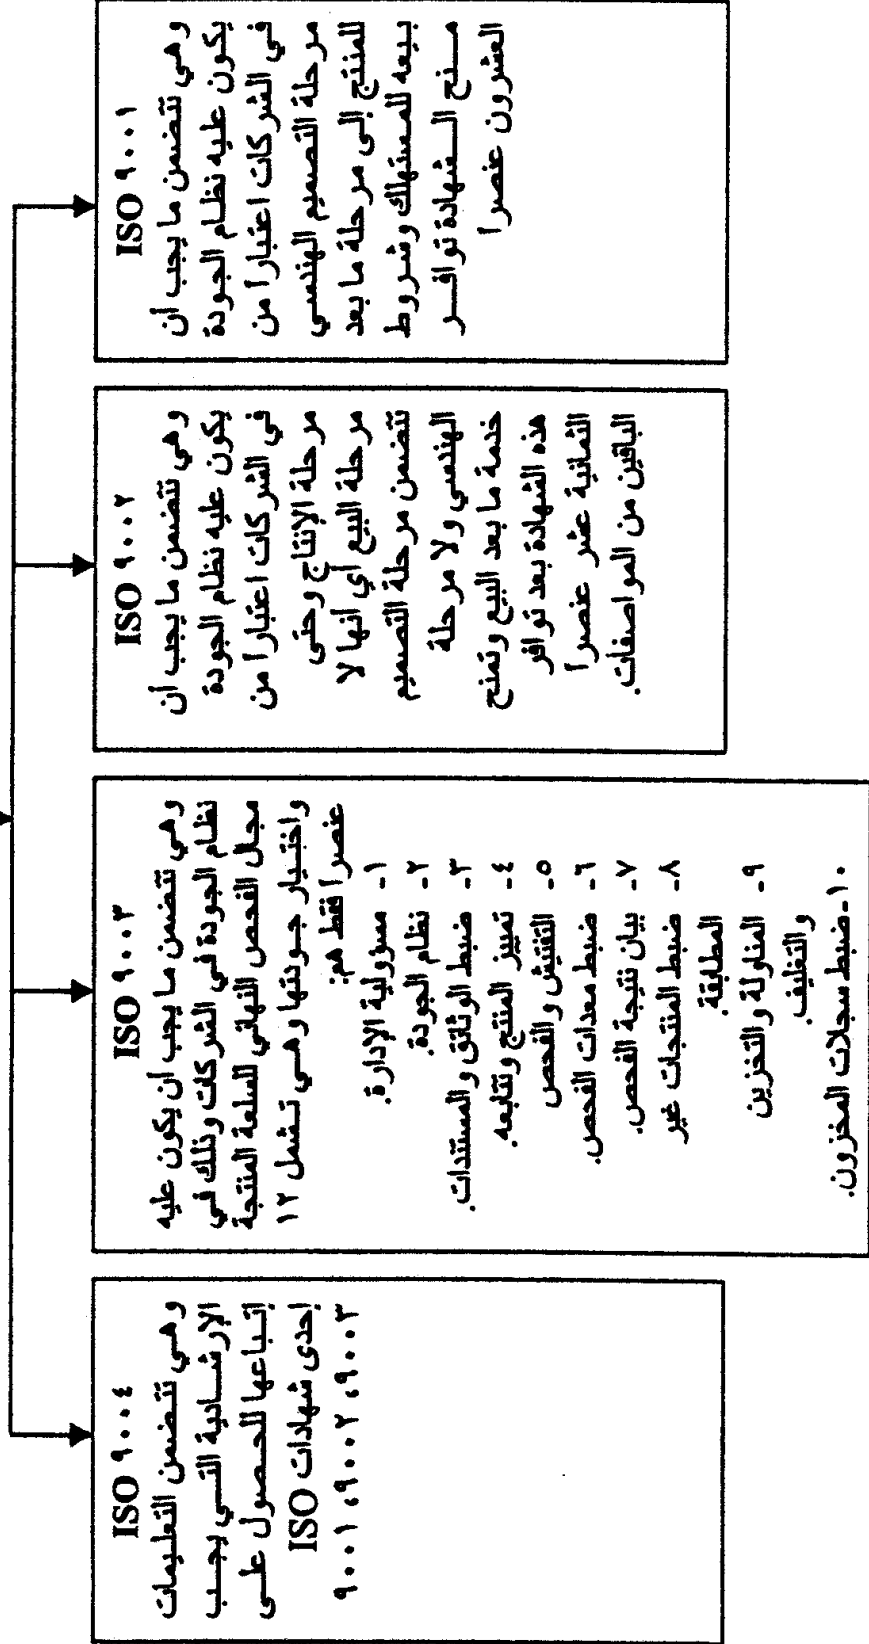 ISO ٩٠٠١
وهي تتضمن ما يجب أن
يكون عليه نظام الجودة
في الشركات اعتباراً من
مرحلة التصميم الهندسي
للمنتج إلى مرحلة ما بعد
بيعه للمستهلك وشروط
منح الشهادة توافر
العشرون عنصراً
ISO ٩٠٠٢
وهي تتضمن ما يجب أن
يكون عليه نظام الجودة
في الشركات اعتباراً من
مرحلة الإنتاج وحتى
مرحلة البيع أي أنها لا
تتضمن مرحلة التصميم
الهندسي ولا مرحلة
خدمة ما بعد البيع وتمنح
هذه الشهادة بعد توافر
الثمانية عشر عنصراً
الباقين من المواصفات.
ISO ٩٠٠٣
وهي تتضمن ما يجب أن يكون عليه
نظام الجودة في الشركات وذلك في
مجال الفحص النهائي للسلعة المنتجة
واختبار جودتها وهي تشمل ١٢
عنصراً فقط هم:
١- مسؤولية الإدارة.
٢- نظام الجودة.
٣- ضبط الوثائق والمستندات.
٤- تمييز المنتج وتتابعه.
٥- التفتيش والفحص
٦- ضبط معدات الفحص.
٧- بيان نتيجة الفحص.
٨- ضبط المنتجات غير
المطابقة
٩- المناولة والتخزين
والتغليف.
١٠- ضبط سجلات المخزون.
ISO ٩٠٠٤
وهي تتضمن التعليمات
الإرشادية التي يجب
إتباعها للحصول على
إحدى شهادات ISO
٩٠٠١،٩٠٠٢،٩٠٠٣